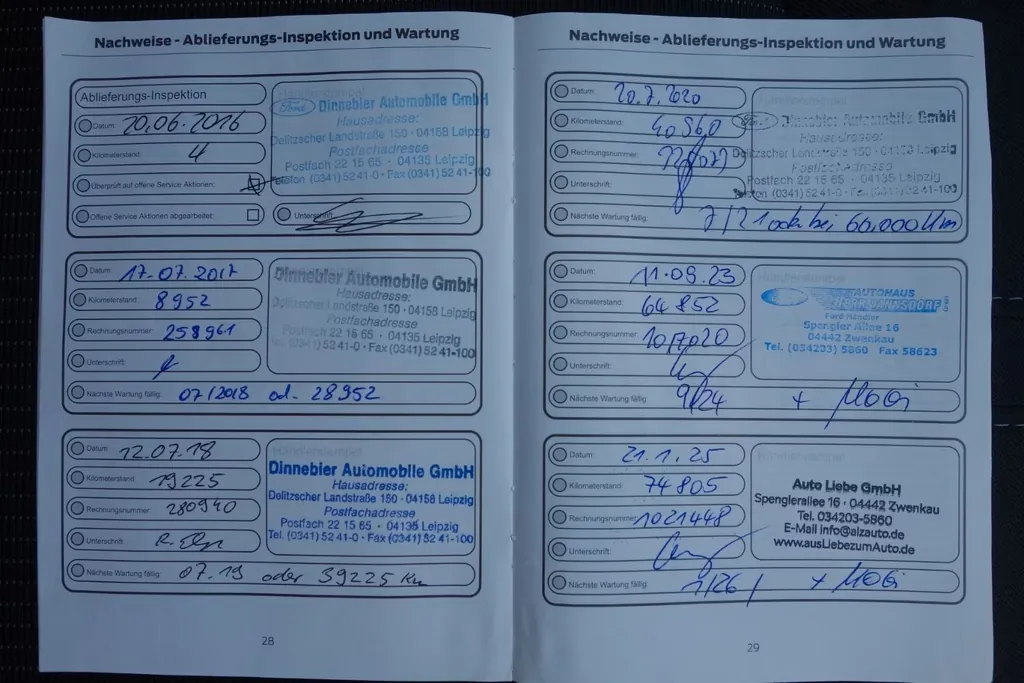 Nachweise - Ablieferungs-Inspektion und Wartung
Ablieferungs-Inspektion
Datum: 20.06.2016
Kilometerstand: 4
Überprüft auf offene Service Aktionen:
Offene Service Aktionen abgearbeitet:
Unterschrift:
Ford Dinnebier Automobile GmbH
Hausadresse:
Delitzscher Landstraße 150 · 04158 Leipzig
Postfachadresse
Postfach 22 15 65 · 04135 Leipzig
Telefon (0341) 52 41-0 · Fax (0341) 52 41-100
Datum: 17.07.2017
Kilometerstand: 8952
Rechnungsnummer: 258961
Unterschrift:
Nächste Wartung fällig: 07/2018 od. 28952
Dinnebier Automobile GmbH
Hausadresse:
Delitzscher Landstraße 150 · 04158 Leipzig
Postfachadresse
Postfach 22 15 65 · 04135 Leipzig
Tel. (0341) 52 41-0 · Fax (0341) 52 41-100
Datum: 12.07.18
Kilometerstand: 19225
Rechnungsnummer: 280940
Unterschrift:
Nächste Wartung fällig: 07.19 oder 39225 Km
Dinnebier Automobile GmbH
Hausadresse:
Delitzscher Landstraße 150 · 04158 Leipzig
Postfachadresse
Postfach 22 15 65 · 04135 Leipzig
Tel. (0341) 52 41-0 · Fax (0341) 52 41-100
28
Nachweise - Ablieferungs-Inspektion und Wartung
Datum: 20.7.2020
Kilometerstand: 40560
Rechnungsnummer:
Unterschrift:
Nächste Wartung fällig: 7/21 oder bei 60.000 Km
Ford Dinnebier Automobile GmbH
Hausadresse:
Delitzscher Landstraße 150 · 04158 Leipzig
Postfachadresse
Postfach 22 15 65 · 04135 Leipzig
Telefon (0341) 52 41-0 · Fax (0341) 52 41-100
Datum: 11.09.23
Kilometerstand: 64852
Rechnungsnummer:
Unterschrift:
Nächste Wartung fällig: 9/24 + Mobi
Händlerstempel
AUTOHAUS
Ford Händler
Spengler Allee 16
04442 Zwenkau
Tel. (034203) 5860 Fax 58623
Datum: 21.1.25
Kilometerstand: 74805
Rechnungsnummer: 1021448
Unterschrift:
Nächste Wartung fällig: 1/26 / + Mobi
Händlerstempel
Auto Liebe GmbH
Spenglerallee 16 · 04442 Zwenkau
Tel. 034203-5860
E-Mail info@alzauto.de
www.ausLiebezumAuto.de
29